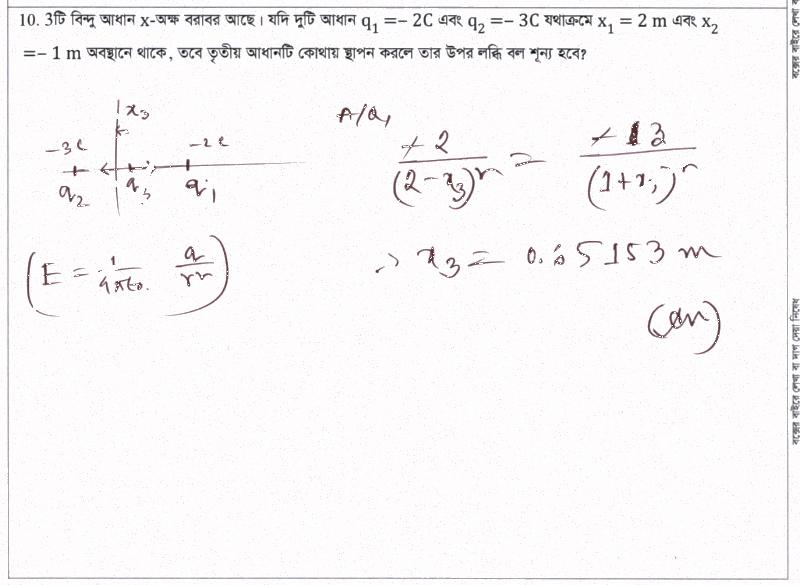 10. 3টি বিন্দু আধান x-অক্ষ বরাবর আছে। যদি দুটি আধান q₁ =– 2C এবং q₂ =– 3C যথাক্রমে x₁ = 2 m এবং x₂
=– 1 m অবস্থানে থাকে, তবে তৃতীয় আধানটি কোথায় স্থাপন করলে তার উপর লব্ধি বল শূন্য হবে?
x₃
-3C -2C
q₂ q₃ q₁
(E = 1/4πε₀. q/r²)
A/Q,
+2/(2-x₃)² = +3/(1+x₃)²
∴ x₃ = 0.65153 m
(Ans)
বক্সের বাইরে লেখা বা দাগ দেয়া নিষেধ